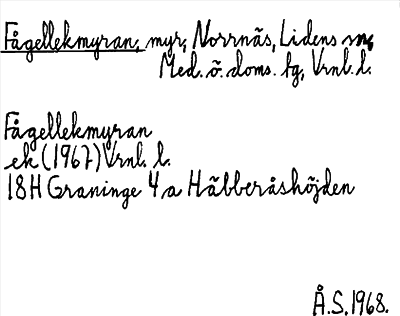 Fågellekmyran, myr, Norrnäs, Lidens sn,
Med. ö. doms. tg, Vrnl. l.
Fågellekmyran
ek (1967) Vrnl. l.
18H Graninge 4a Häbberåshöjden
Å.S. 1968.